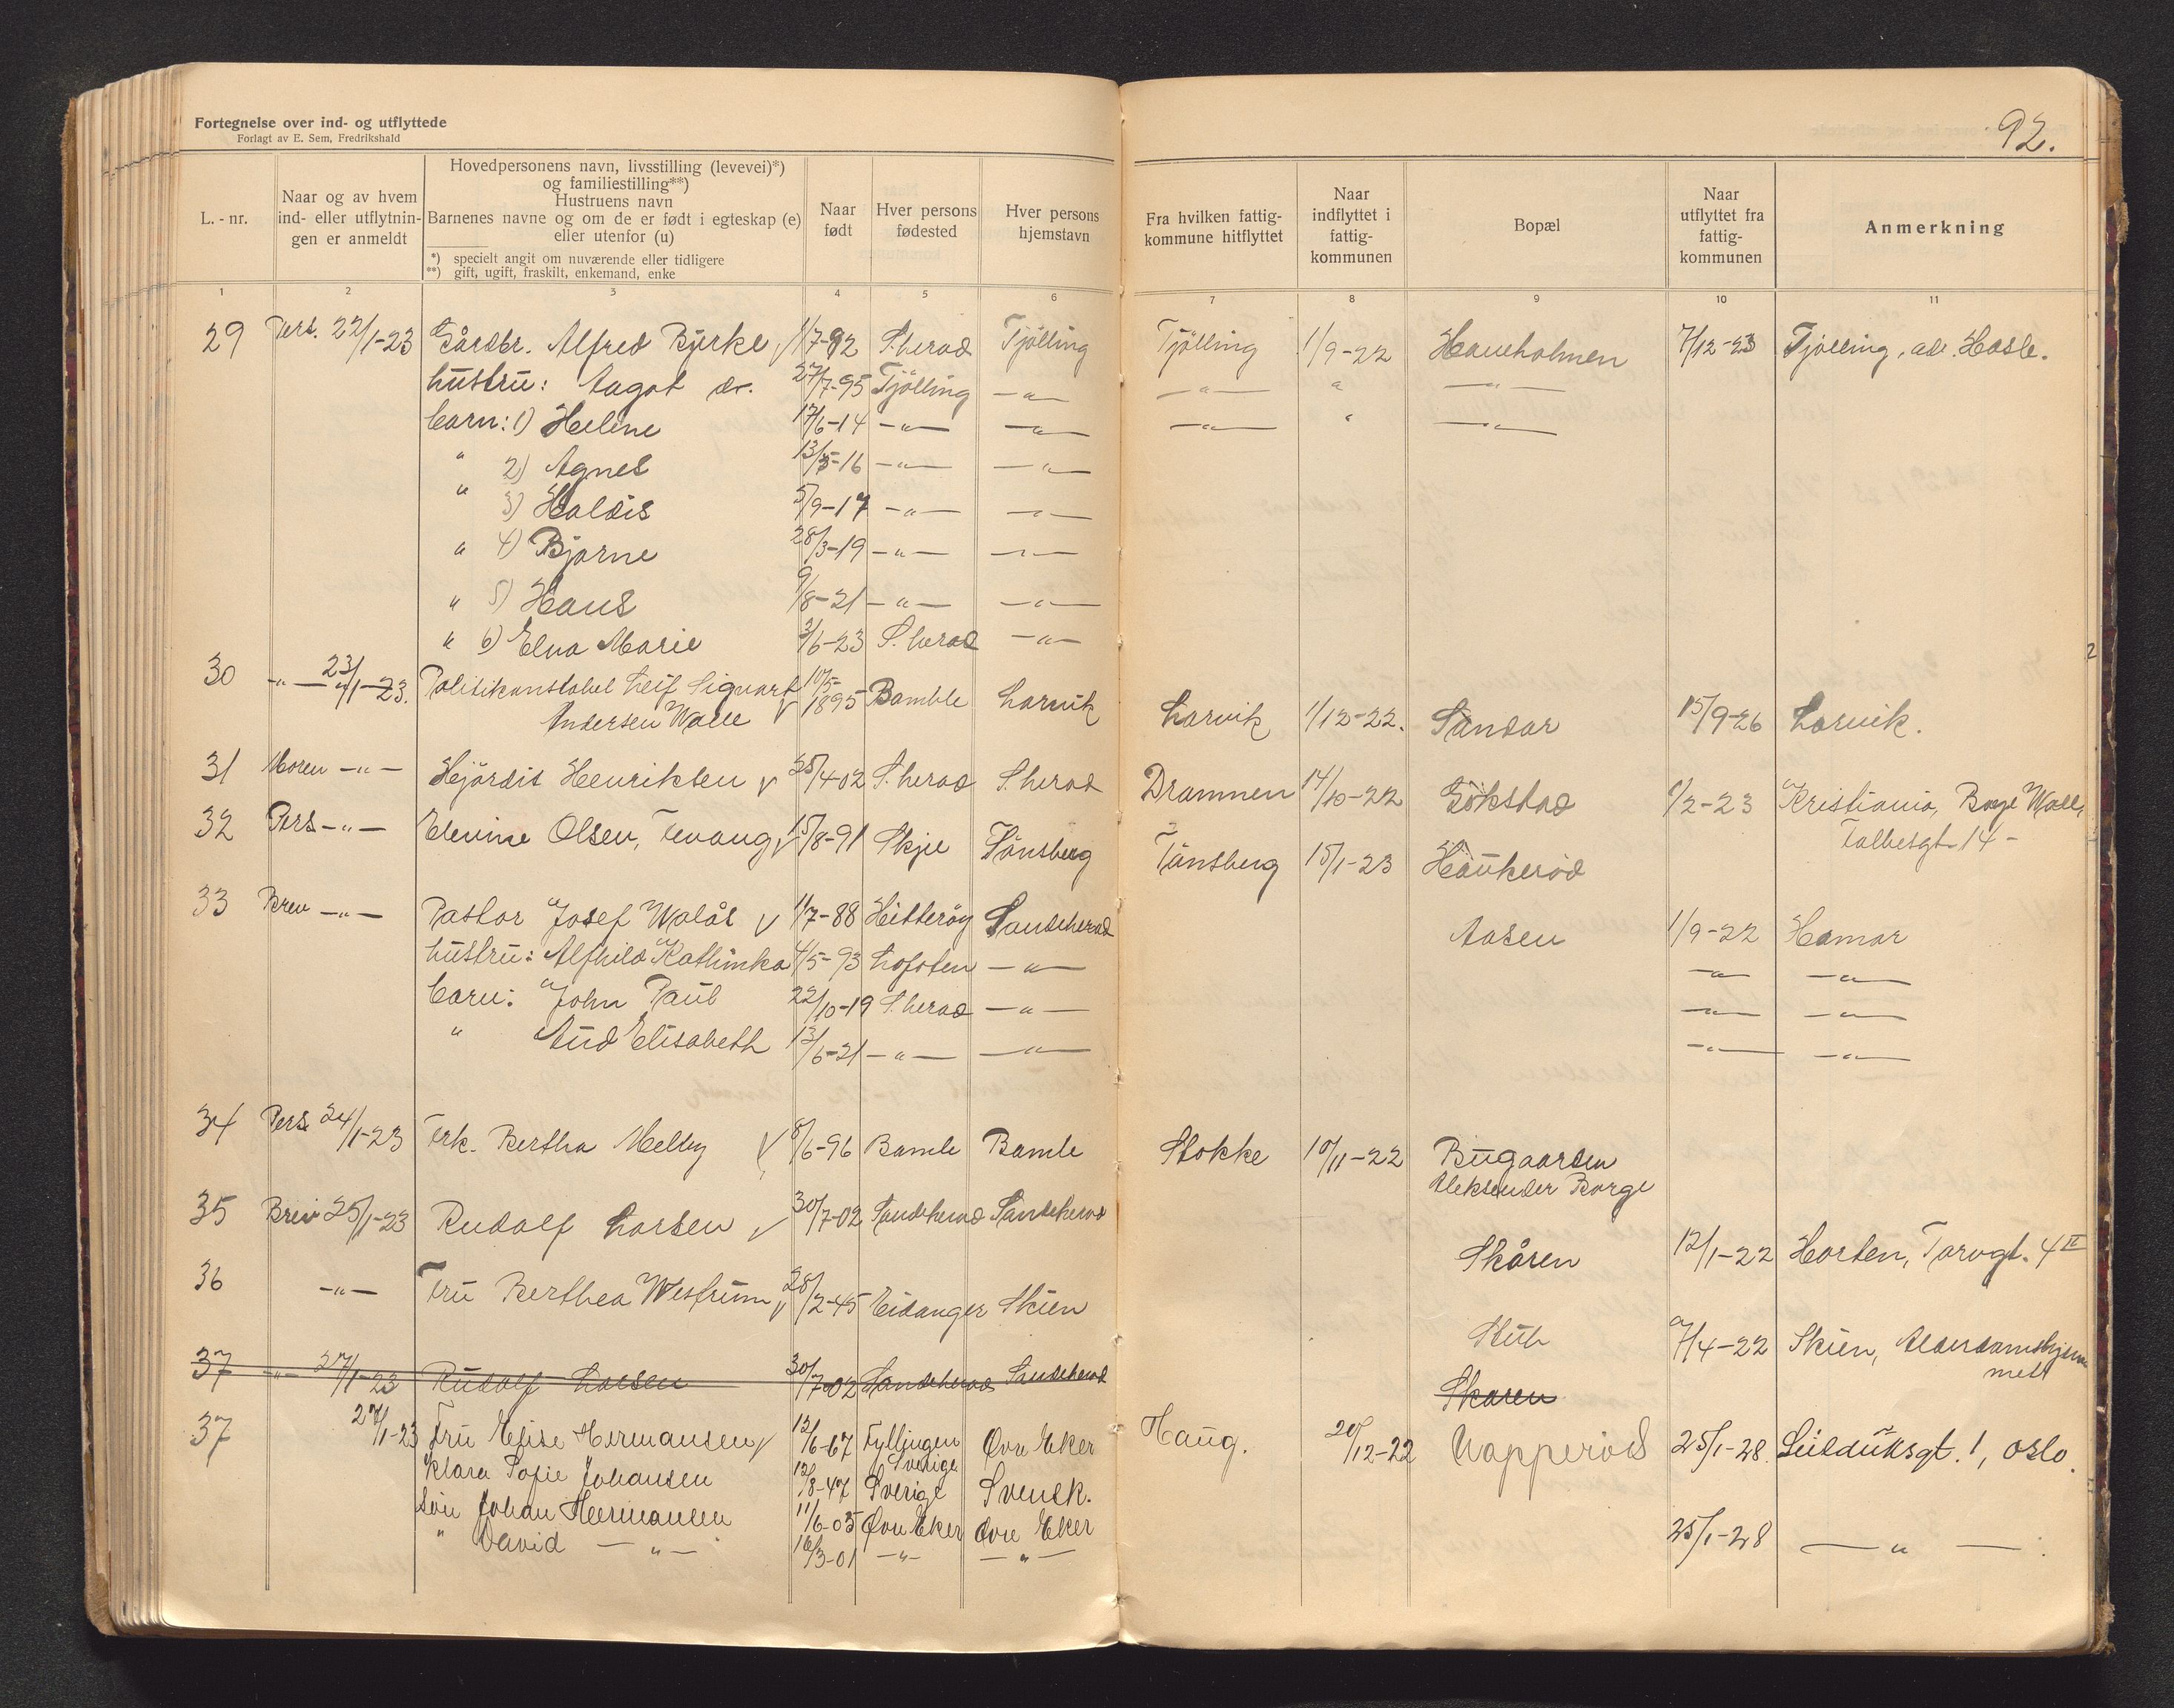 Fortegnelse over ind- og utflyttede
Forlagt av E. Sem, Fredrikshald
92.
L. - nr.
Naar og av hvem ind- eller utflytnin- gen er anmeldt
Hovedpersonens navn, livsstilling (levevei)*)
og familiestilling**)
Hustruens navn
Barnenes navne og om de er født i egteskap (e)
eller utenfor (u)
*) specielt angit om nuværende eller tidligere
**) gift, ugift, fraskilt, enkemand, enke
Naar født
Hver persons fødested
Hver persons hjemstavn
Fra hvilken fattig- kommune hitflyttet
Naar indflyttet i fattig- kommunen
Bopæl
Naar utflyttet fra fattig- kommunen
Anmerkning
1 2 3 4 5 6 7 8 9 10 11
29 Pers. 22/1-23 Gårdbr. Alfred Bjerke 1/7-92 S.herad Tjölling Tjölling 1/9-22 Haueholmen 7/12-23 Tjölling, adr. Hasle.
hustru: Aagot do. 27/7-95 Tjölling -"- -"- " -"-
barn: 1) Helene 17/6-14 -"- -"- -"- " -"-
" 2) Agnes 13/5-16 -"- -"-
" 3) Haldis 5/9-17 -"- -"-
" 4) Bjarne 28/3-19 -"- -"-
" 5) Hans 9/8-21 -"- -"-
" 6) Elna Marie 3/6-23 S.herad -"-
30 -"- 23/1-23. Politikonstabel Leif Sigvart 10/5- 1895 Bamble Larvik Larvik 1/12-22. Sandar 15/9-26 Larvik.
Andersen Walle
31 Moren -"- Hjördis Henriksen 25/4-02 S.herad S.herad Drammen 14/10-22 Gökstad 1/2-23 Kristiania,
14-
32 Pers -"- Elevine Olsen, Tevang 15/8-91 Skjee Tönsberg Tönsberg 15/1-23 Haukeröd
33 Brev -"- Pastor Josef Walås 1/7-88 Hitteröy Sandeherad Aasen 1/9-22 Hamar
hustru: Alfhild Kathinka 4/5-93 Lofoten -"- -"- -"-
barn: John Paul 22/10-19 S.herad -"- -"- -"-
" Aud Elisabeth 13/6-21 -"- -"- -"- -"-
34 Pers 24/1-23 Frk. Bertha Melby 8/6-96 Bamle Bamle Stokke 10/11-22 Bugaarden
Aleksander Borge
35 Brev 25/1-23 Rudolf Larsen 30/7-02 Sandeherad Sandeherad Skåren 12/1-22 Horten, Torvgt. 4 II
36 -"- Fru Berthea Westrum 28/2-45 Eidanger Skien Stub 7/4-22 Skien, Alderdomshjem-
met
37 -"- 27/1-23 Rudolf Larsen 30/7-02 Sandeherad Sandeherad Skaren
37 27/1-23 Fru Elise Hermansen 12/6-67 Fyllingen Övre Eker Haug. 20/12-22 Napperöd 25/1-28 Seilduksgt. 1, Oslo.
Sverige
Klara Sofie Johansen 12/8-47 Sverige Svensk.
Sön Johan Hermansen 11/6-05 Øvre Eker Övre Eker
" David -"- 16/3-01 -"- -"- 25/1-28 -"-